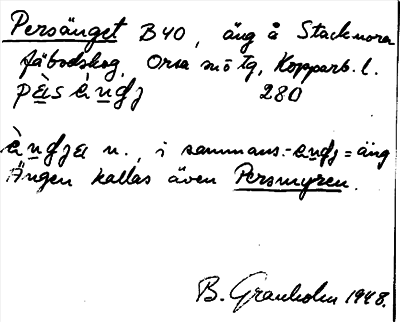 Persänget B40, äng å Stacknora
fäbodskog, Orsa snö tg, Kopparb. l.
pèis èndj 280
èndjeı n., i sammans. -endj = äng
Ängen kallas även Persmyren.
B. Granholm 1948.